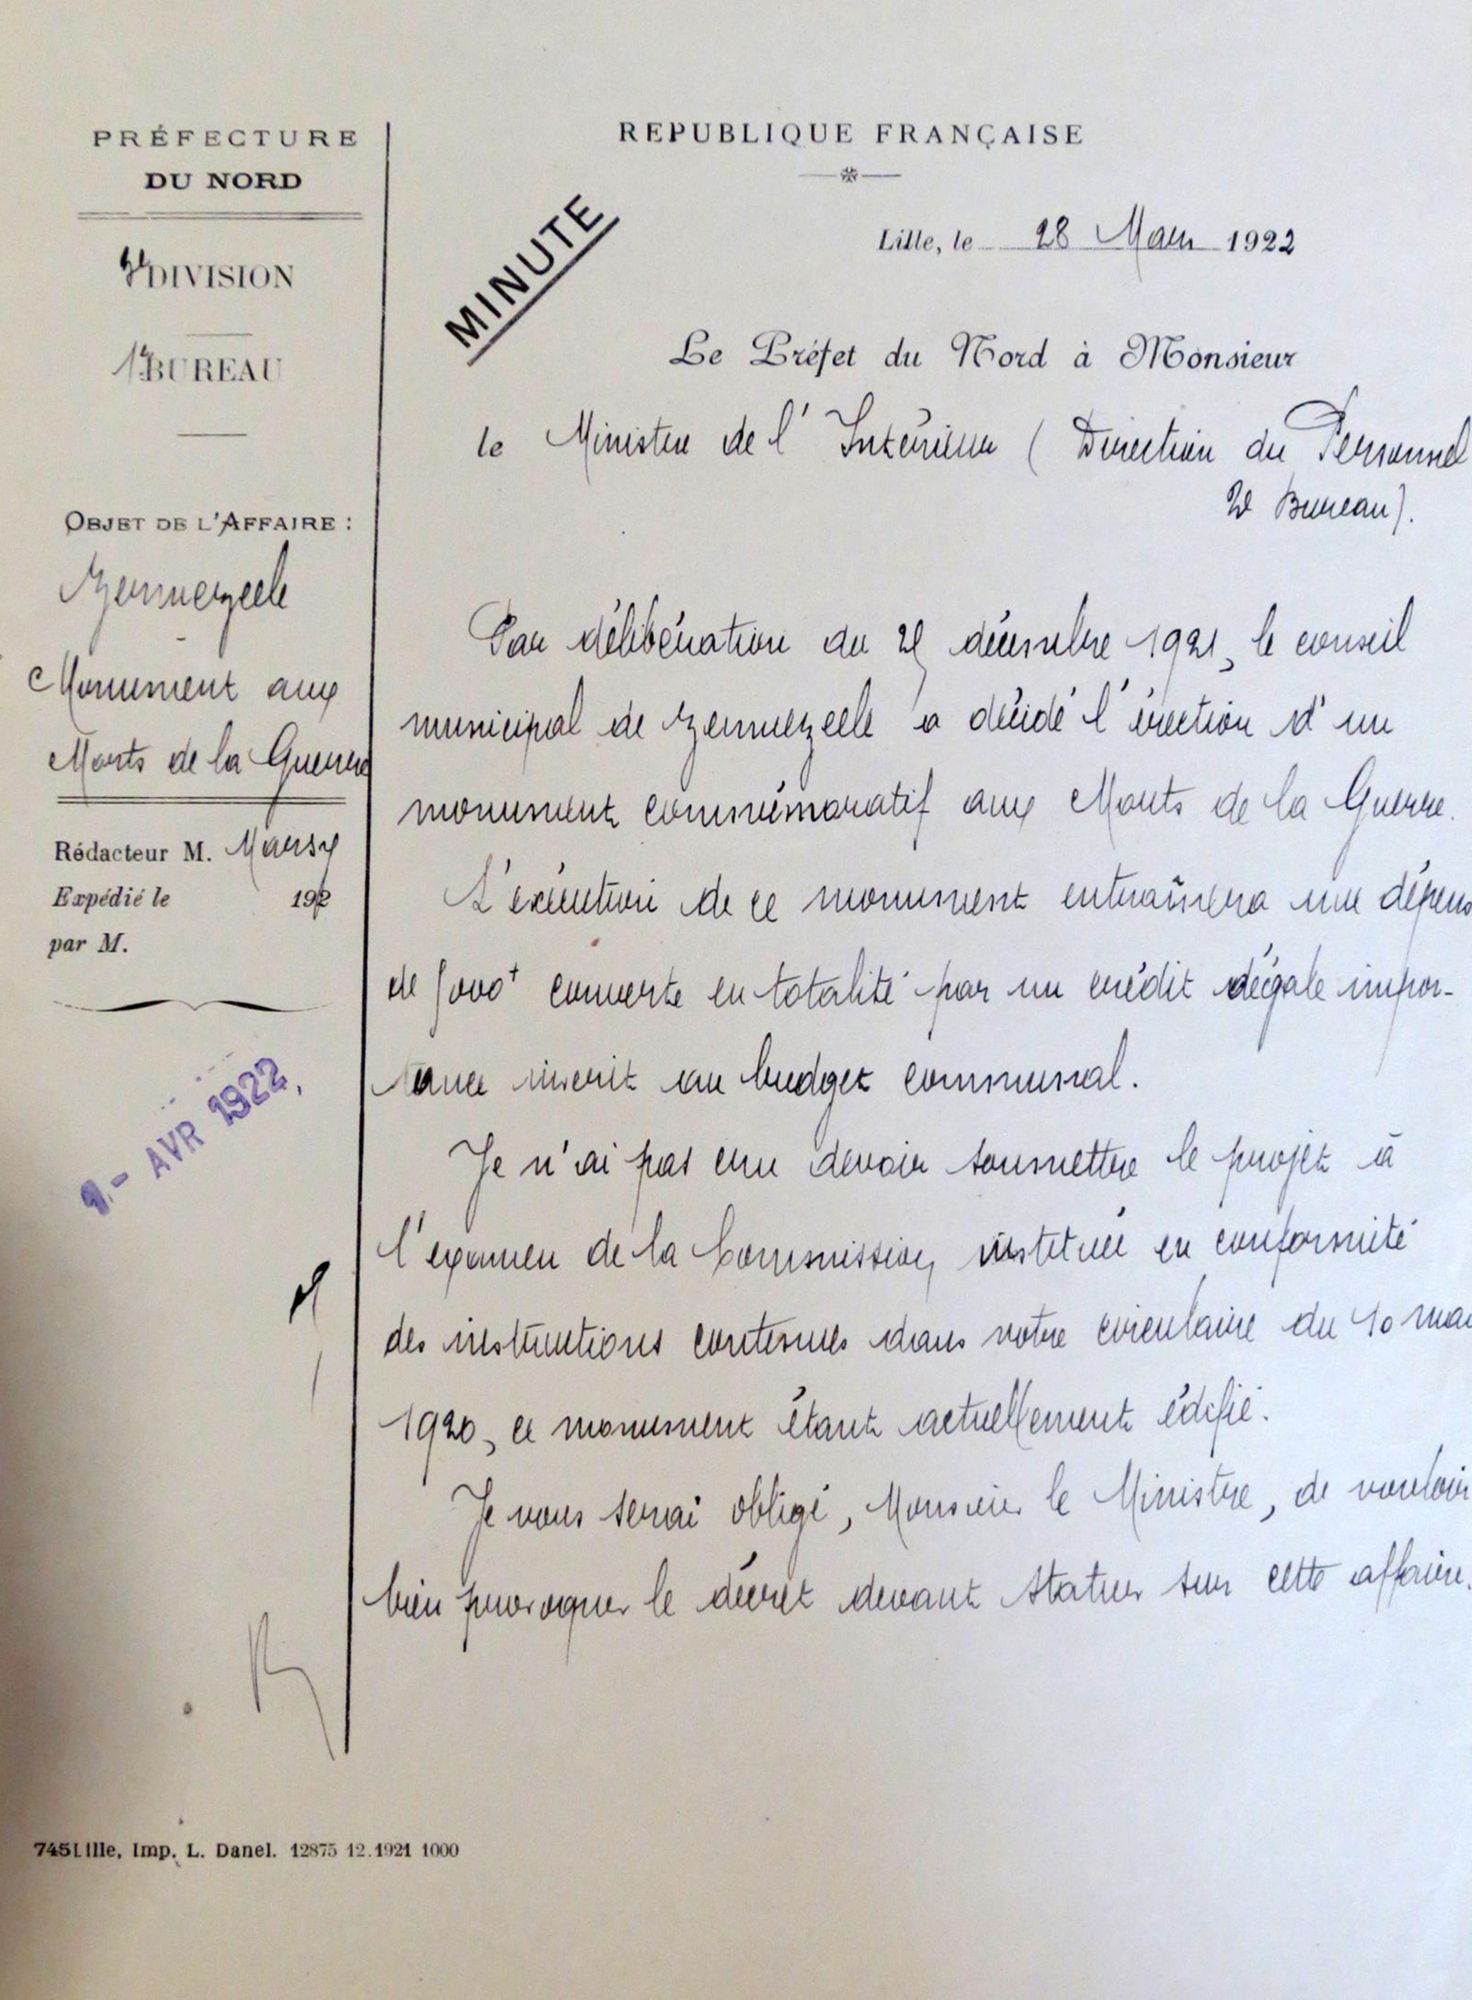 PRÉFECTURE
DU NORD
DIVISION
1er BUREAU
OBJET DE L'AFFAIRE :
Zermezeele
Monument aux
Morts de la Guerre
Rédacteur M. Marsy
Expédié le 192
par M.
- AVR 1922
REPUBLIQUE FRANÇAISE
MINUTE
Lille, le 28 Mars 1922
Le Préfet du Nord à Monsieur
le Ministre de l'Intérieur (Direction du Personnel
2e Bureau).
Par délibération du décembre 1921, le conseil
municipal de Zermezeele a décidé l'érection d'un
monument commémoratif aux Morts de la Guerre.
L'exécution de ce monument entraînera une dépense
de 5000f couverte en totalité par un crédit d'égale impor-
tance inscrit au budget communal.
Je n'ai pas cru devoir soumettre le projet à
l'examen de la Commission, instituée en conformité
des instructions contenues dans votre circulaire du 10 mai
1920, ce monument étant actuellement édifié.
Je vous serai obligé, Monsieur le Ministre, de vouloir
bien provoquer le décret devant statuer sur cette affaire.
745 Lille, Imp. L. Danel. 12875 12.1921 1000